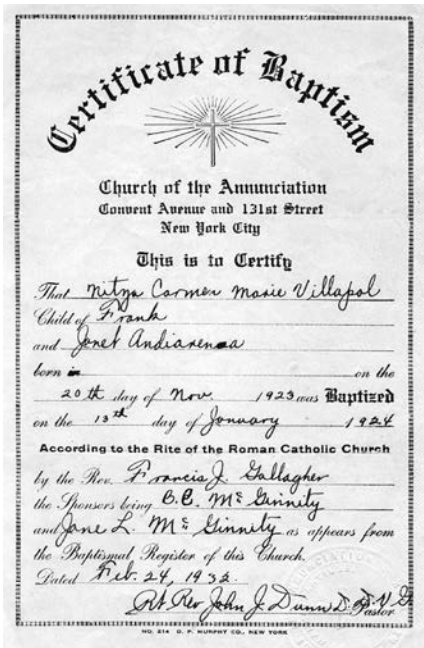 Certificate of Baptism
Church of the Annunciation
Convent Avenue and 131st Street
New York City
This is to Certify
That Nitza Carmen Marie Villapol
Child of Frank
and Janet Andiarenaa
born in on the
20th day of Nov. 1923 was Baptized
on the 13th day of January 1924
According to the Rite of the Roman Catholic Church
by the Rev. Francis J. Gallagher
the Sponsors being B.C. Mc Ginnity
and Jane L. Mc Ginnity as appears from
the Baptismal Register of this Church.
Dated Feb. 24, 1932
Rt Rev John J. Dunn D.D. V G
Pastor
NO. 214 D. P. MURPHY CO., NEW YORK